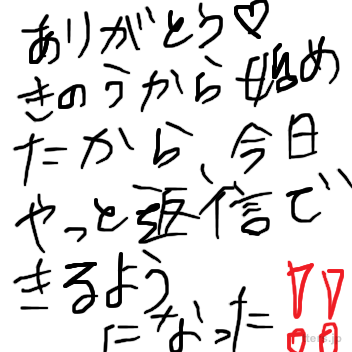 ありがとう♡
きのうから始め
たから、今日
やっと返信で
きるよう
になった!!